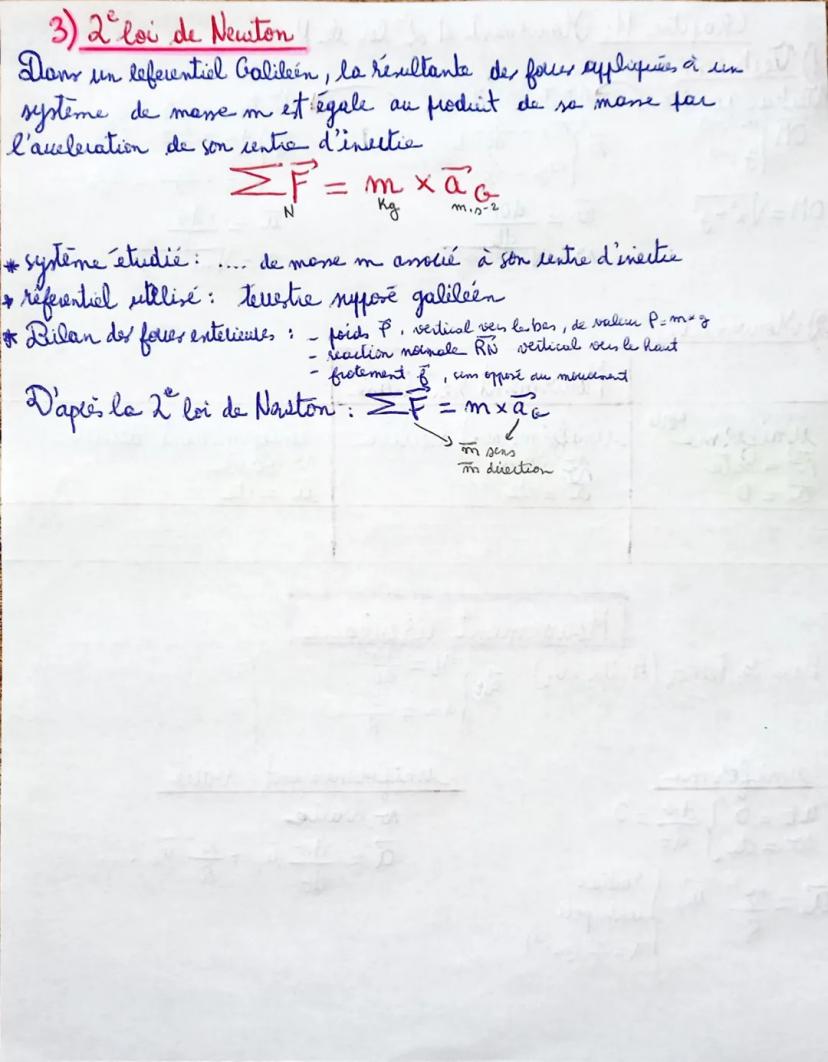 3) 2e loi de Newton
Dans un referentiel Galiléen, la résultante des forces appliquées à un
système de masse m est égale au produit de sa masse par
l'acceleration de son centre d'inertie
∑F⃗ = m × a⃗G
N Kg m.s-2
* système étudié : .... de masse m associé à son centre d'inertie
* référentiel utilisé : terrestre supposé galiléen
* Bilan des forces exterieures : - poids P⃗, vertical vers le bas, de valeur P = m×g
- réaction normale R⃗N vertical vers le haut
- frotement f⃗, sens opposé au mouvement
D'après la 2e loi de Newton : ∑F⃗ = m × a⃗G
m̅ sens
m̅ direction